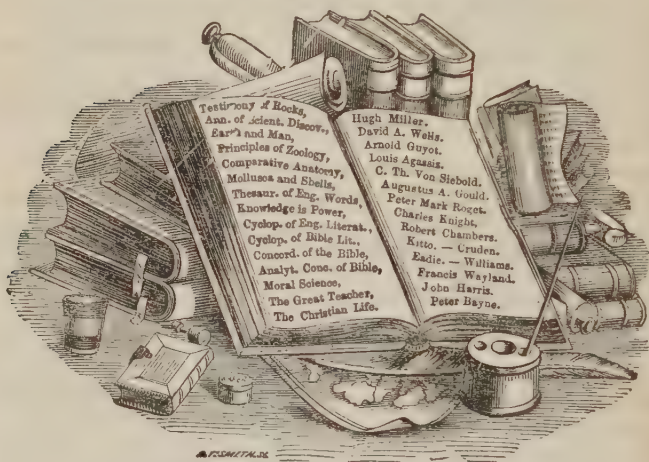 Testimony of Rocks,
Ann. of Scient. Discov.,
Earth and Man,
Principles of Zoology,
Comparative Anatomy,
Mollusca and Shells,
Thesaur. of Eng. Words,
Knowledge is Power,
Cyclop. of Eng. Literat.,
Cyclop. of Bible Lit.,
Concord. of the Bible,
Analyt. Conc. of Bible,
Moral Science,
The Great Teacher,
The Christian Life.
Hugh Miller.
David A. Wells.
Arnold Guyot.
Louis Agassiz.
C. Th. Von Siebold.
Augustus A. Gould.
Peter Mark Roget.
Charles Knight.
Robert Chambers.
Kitto. — Cruden.
Eadie. — Williams.
Francis Wayland.
John Harris.
Peter Bayne.